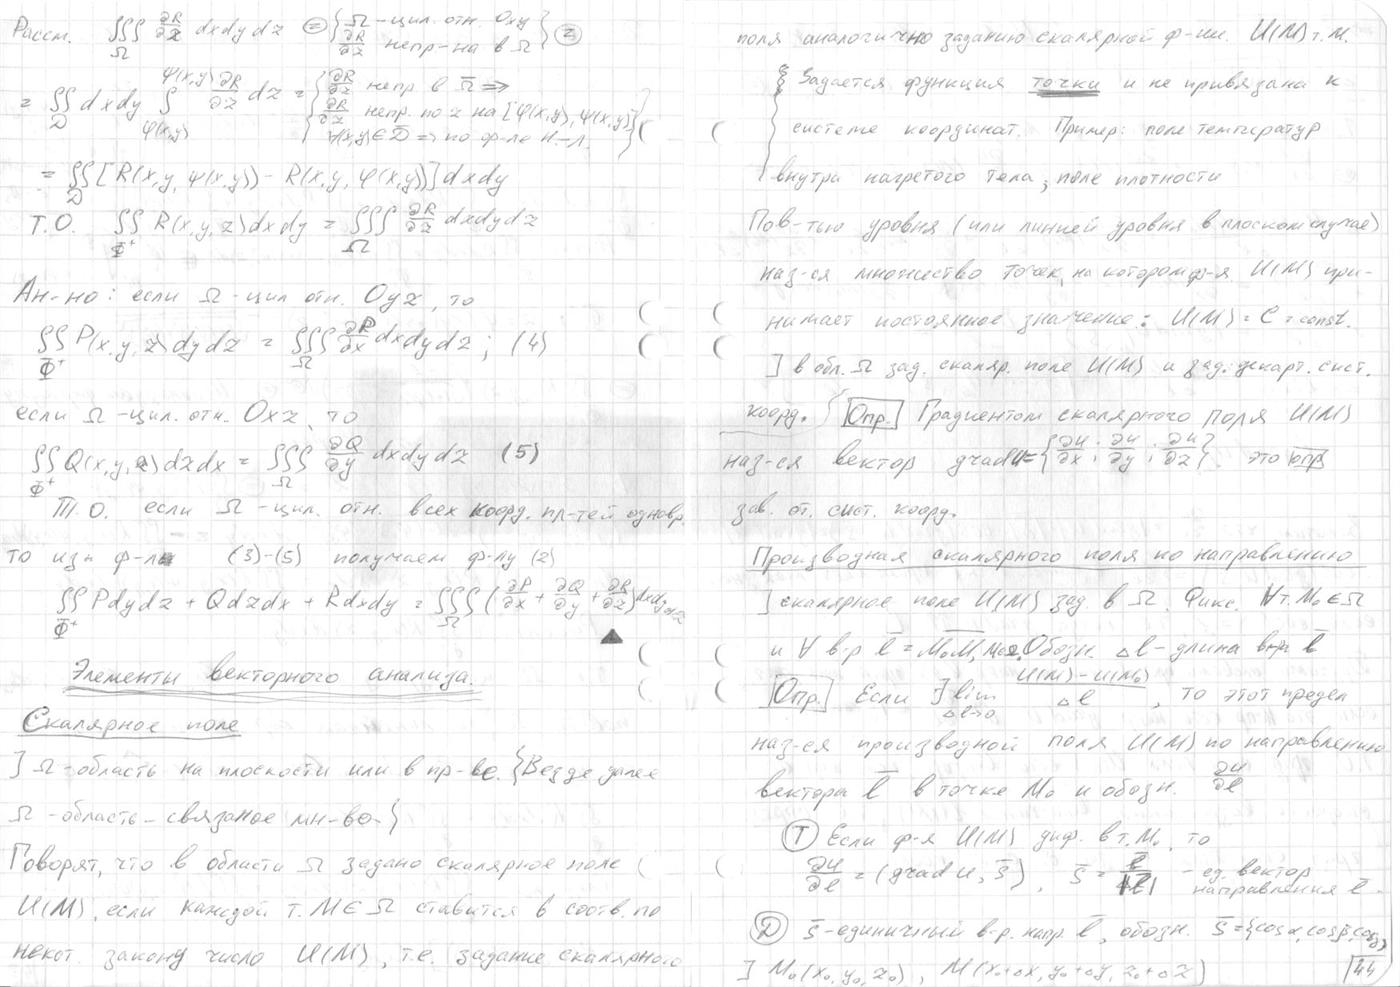 Рассм. ∭_Ω ∂R/∂z dxdydz ⊜ {Ω - цил. отн. Oxy; ∂R/∂z непр-на в Ω} ⊜
= ∬_D dxdy ∫_{φ(x,y)}^{ψ(x,y)} ∂R/∂z dz = {∂R/∂z непр в Ω̅ ⇒ ∂R/∂z непр. по z на [φ(x,y), ψ(x,y)] ∀(x,y)∈D̅ ⇒ по ф-ле Н.-Л.}
= ∬_D [R(x,y,ψ(x,y)) - R(x,y,φ(x,y))] dxdy
Т.О. ∬_Φ̅⁺ R(x,y,z)dxdy = ∭_Ω ∂R/∂z dxdydz
Ан-но: если Ω - цил отн. Oyz, то
∬_Φ̅⁺ P(x,y,z)dydz = ∭_Ω ∂P/∂x dxdydz; (4)
если Ω - цил. отн. Oxz, то
∬_Φ̅⁺ Q(x,y,z)dzdx = ∭_Ω ∂Q/∂y dxdydz (5)
Т.О. если Ω - цил. отн. всех коорд. пл-тей одновр.
то из ф-л (3)-(5) получаем ф-лу (2)
∬_Φ̅⁺ Pdydz + Qdzdx + Rdxdy = ∭_Ω (∂P/∂x + ∂Q/∂y + ∂R/∂z)dxdydz
▲
Элементы векторного анализа.
Скалярное поле
] Ω - область на плоскости или в пр-ве. {Везде далее
Ω - область - связаное мн-во}
Говорят, что в области Ω задано скалярное поле
U(M), если каждой т. M∈Ω ставится в соотв. по
некот. закону число U(M), т.е. задание скалярного
поля аналогично заданию скалярной ф-ии. U(M) т.M.
{Задается функция точки и не привязана к
системе координат. Пример: поле температур
внутри нагретого тела; поле плотности
Пов-тью уровня (или линией уровня в плоском случае)
наз-ся множество точек, на котором ф-я U(M) при-
нимает постоянное значение: U(M) = C = const.
] в обл. Ω зад. скаляр. поле U(M) и зад. декарт. сист.
коорд. { Опр. Градиентом скалярного поля U(M)
наз-ся вектор grad U = {∂u/∂x; ∂u/∂y; ∂u/∂z}. это опр
зав. от. сист. коорд.
Производная скалярного поля по направлению
] скалярное поле U(M) зад. в Ω. Фикс. ∀т.M₀∈Ω
и ∀ в-р l̅ = M₀M, Обозн. Δl - длина l̅
Опр. Если ∃ lim_{Δl→0} (U(M) - U(M₀))/Δl, то этот предел
наз-ся производной поля U(M) по направлению
вектора l̅ в точке M₀ и обозн. ∂u/∂l
Ⓣ Если ф-я U(M) диф. в т.M₀, то
∂u/∂l = (grad u, s̅), s̅ = l̅/|l̅| - ед. вектор направления l̅.
Ⓓ s̅ - единичный в-р. напр. l̅, обозн. s̅ = {cosα, cosβ, cosγ}
] M₀(x₀, y₀, z₀), M(x₀+Δx, y₀+Δy, z₀+Δz)
44